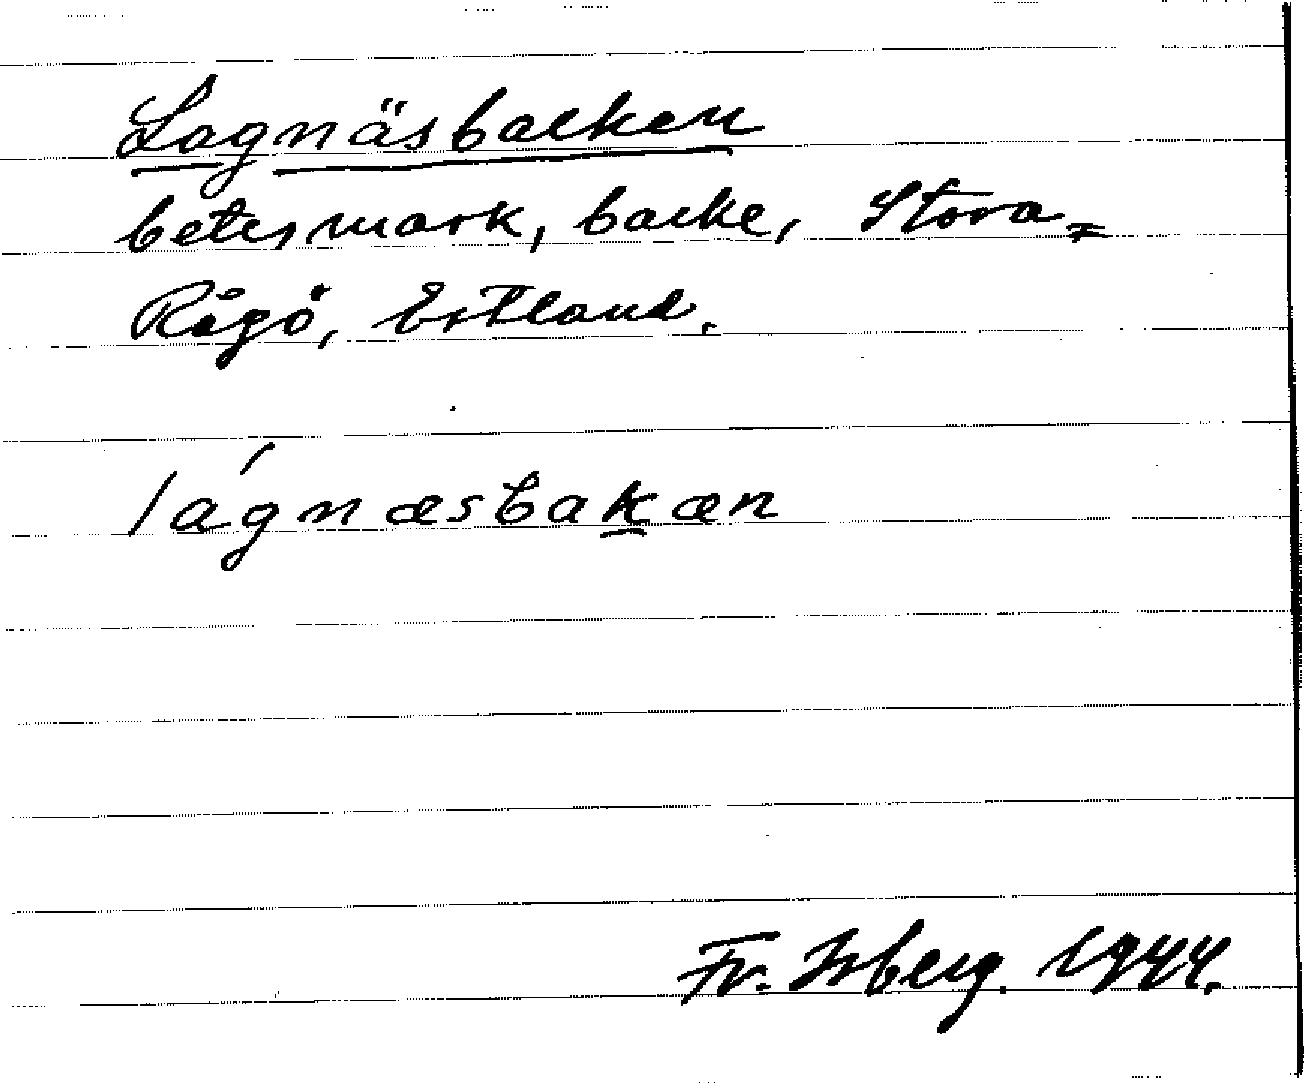 Lagnäsbacken
betesmark, backe, Stora=
Rågö, Estland.
lágnæsbakæn
Fr. Isberg. 1944.